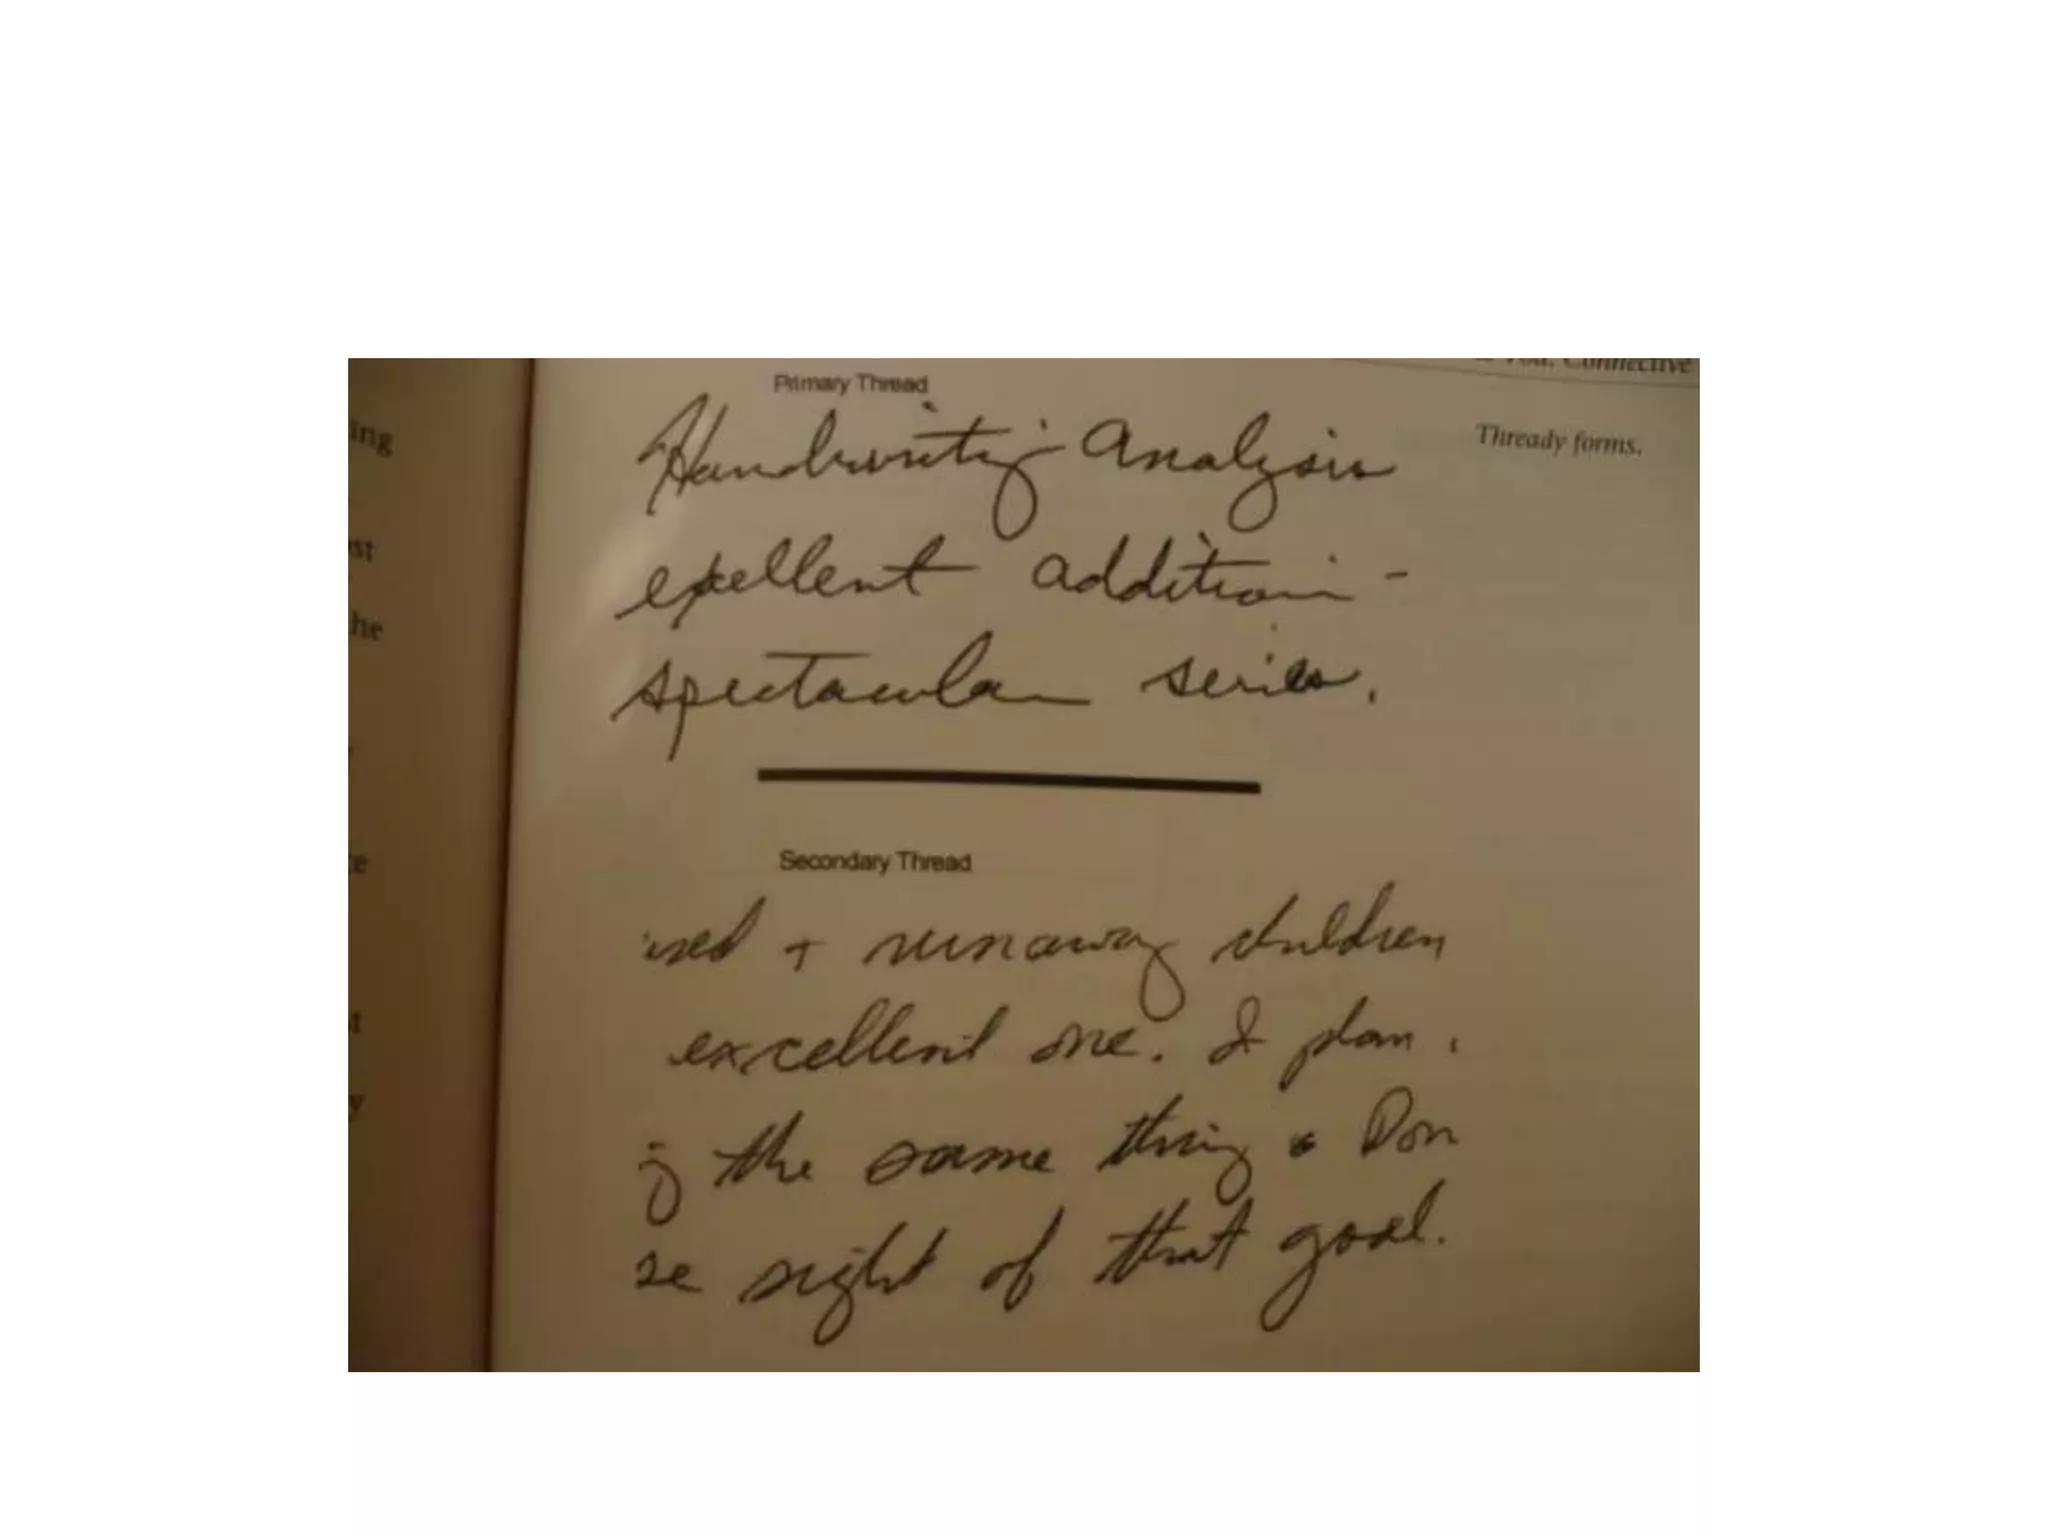 Connective
Primary Thread
Thready forms.
Handwriting Analysis
excellent addition -
spectacular series.
Secondary Thread
used + runaway children
excellent one. I plan
g the same thing & Don
se sight of that goal.
ing
st
he
re
t
y